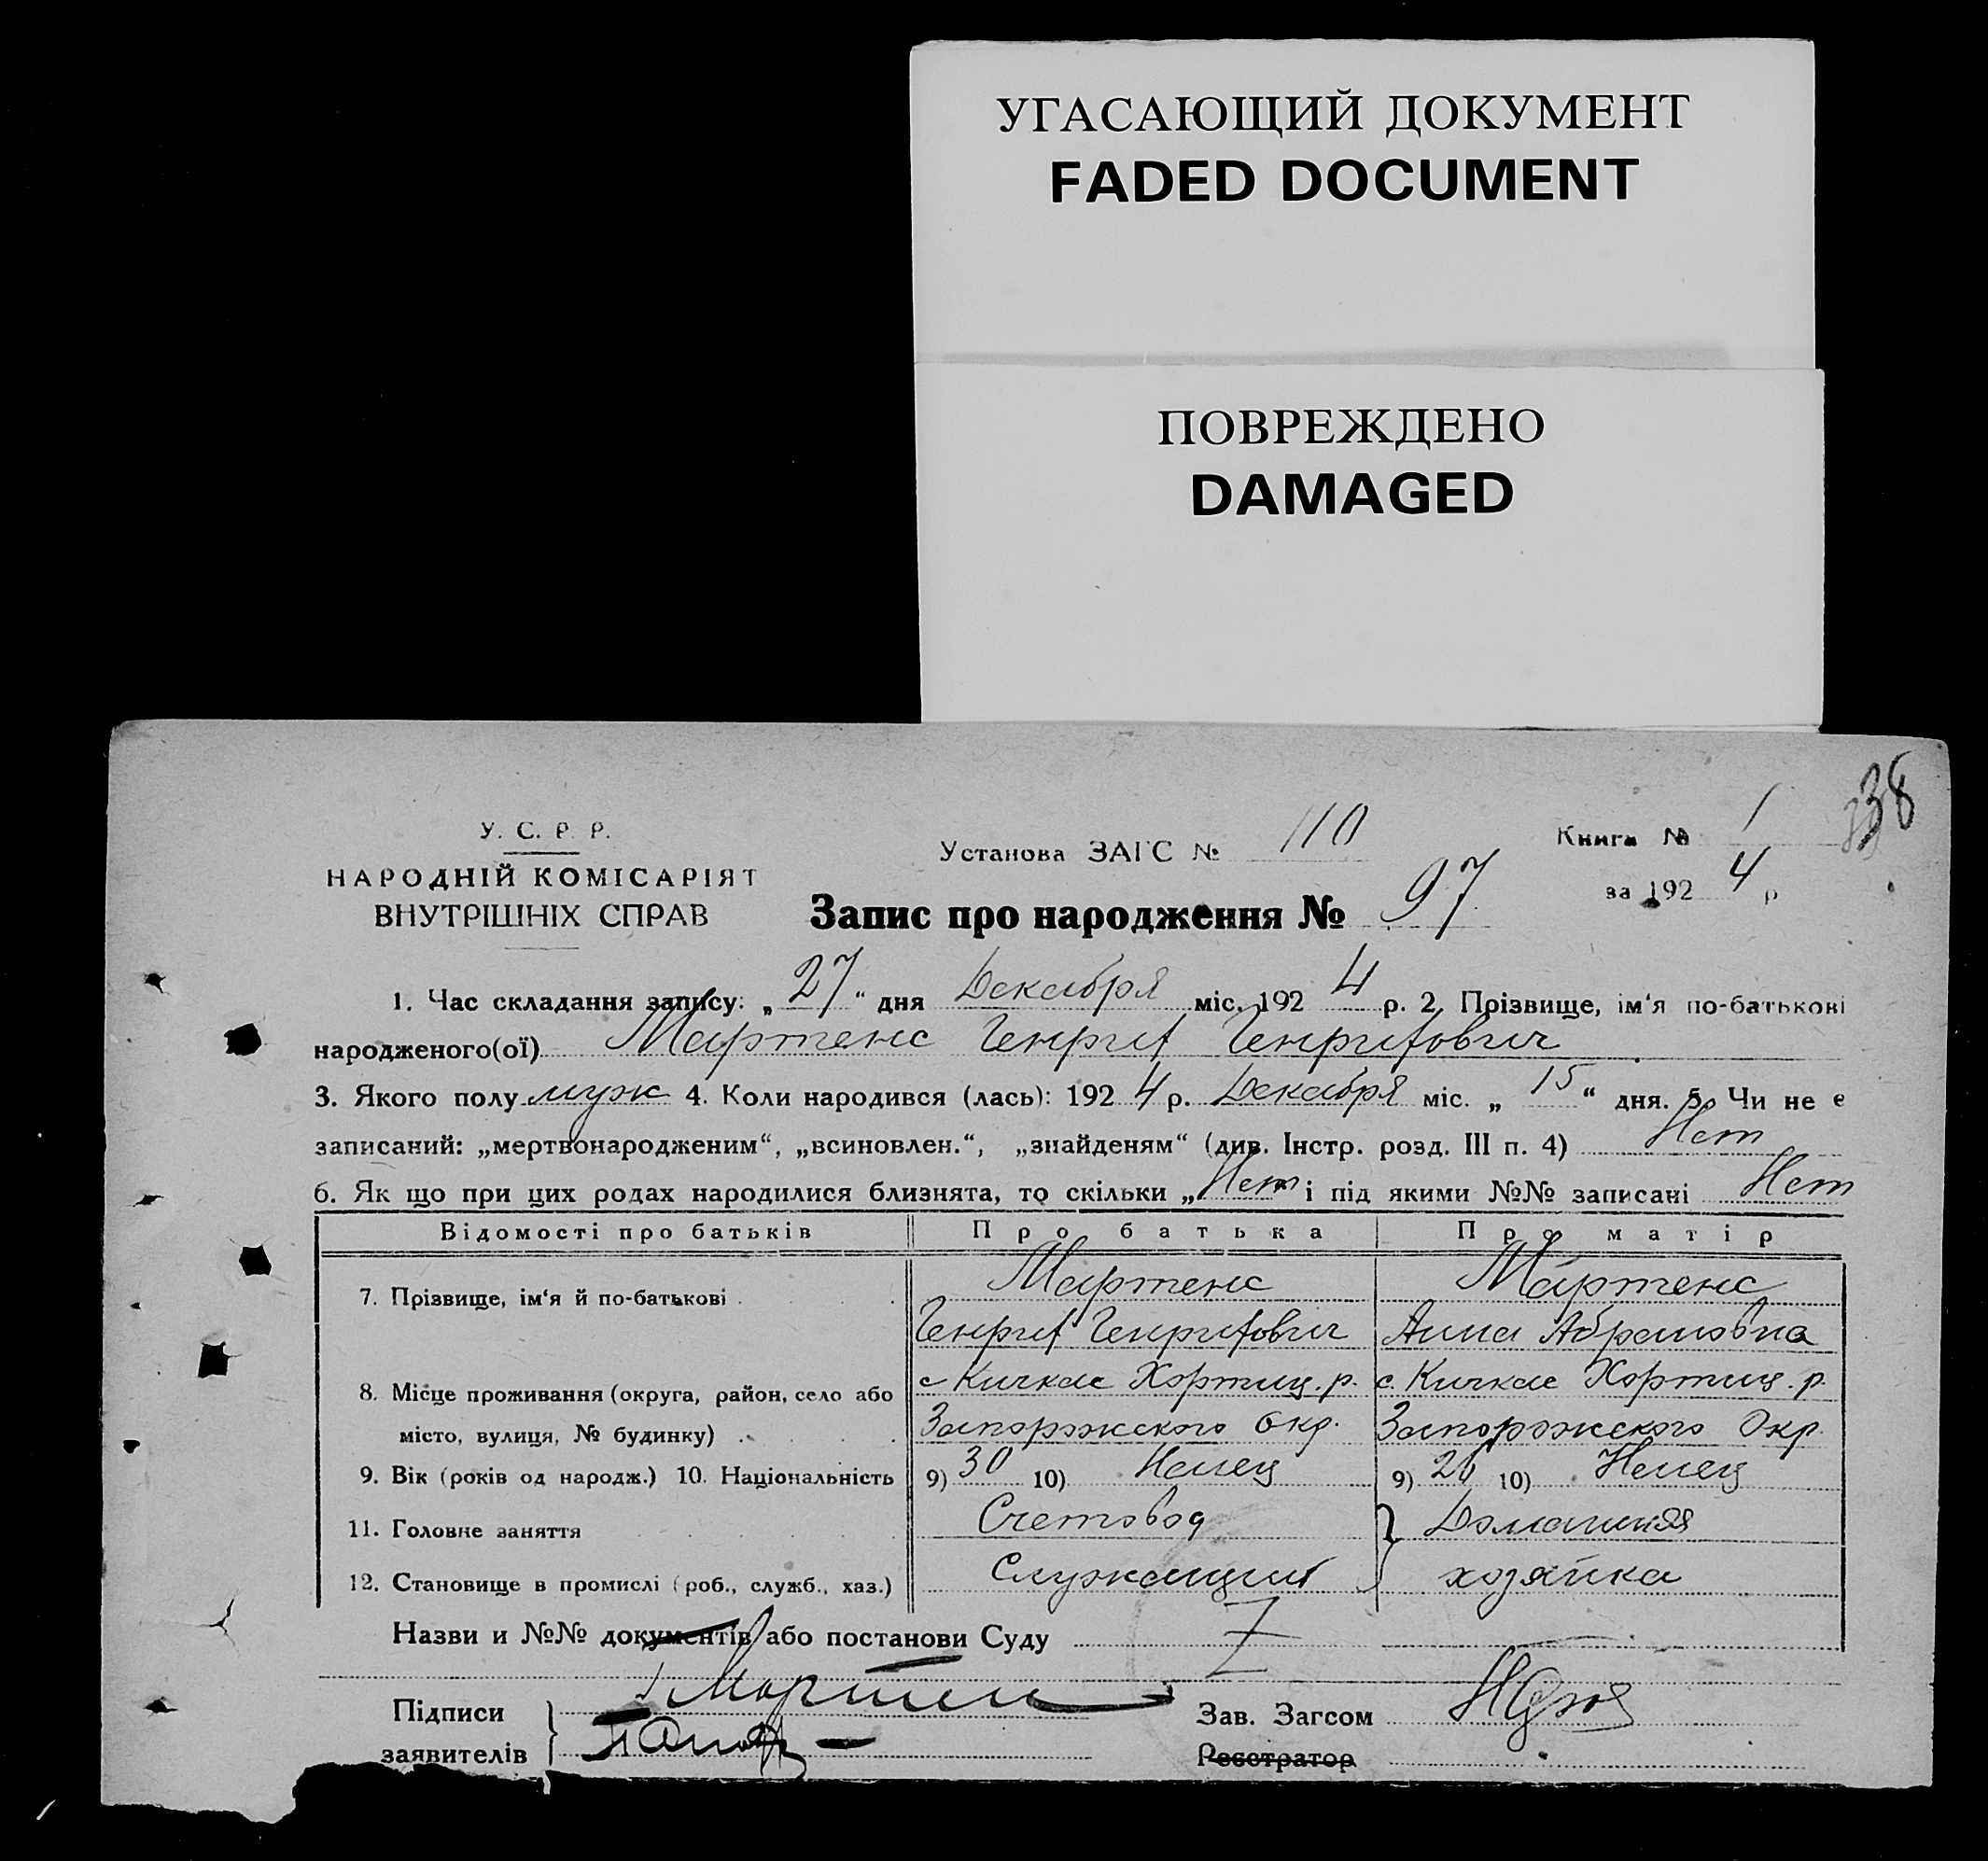 УГАСАЮЩИЙ ДОКУМЕНТ
FADED DOCUMENT
ПОВРЕЖДЕНО
DAMAGED
38
У. С. Р. Р.
НАРОДНІЙ КОМІСАРІЯТ
ВНУТРІШНІХ СПРАВ
Установа ЗАГС № 110
Книга № 1
за 1924 р
Запис про народження № 97
1. Час складання запису: „27“ дня Декабря міс. 1924 р. 2. Прізвище, ім‘я по-батькові
народженого(ої) Мартенс Генрих Генрихович
3. Якого полу муж 4. Коли народився (лась): 1924 р. Декабря міс. „15“ дня. 5. Чи не є
записаний: „мертвонародженим“, „всиновлен.“, „знайденям“ (див. Інстр. розд. III п. 4) Нет
6. Як що при цих родах народилися близнята, то скільки „Нет“ і під якими №№ записані Нет
Відомості про батьків Про батька Про матір
7. Прізвище, ім‘я й по-батькові Мартенс Мартенс
Генрих Генрихович Анна Абрамовна
8. Місце проживання (округа, район, село або с Кичкас Хортиц. р. с. Кичкас Хортиц. р.
місто, вулиця, № будинку) Запорожского Окр. Запорожского Окр.
9. Вік (років од народж.) 10. Національність 9) 30 10) Немец 9) 26 10) Немец
11. Головне заняття Счетовод Домашняя
12. Становище в промислі (роб., служб., хаз.) Служащий хозяйка
Назви и №№ документів або постанови Суду
Підписи
заявителів
Зав. Загсом
Реєстратор